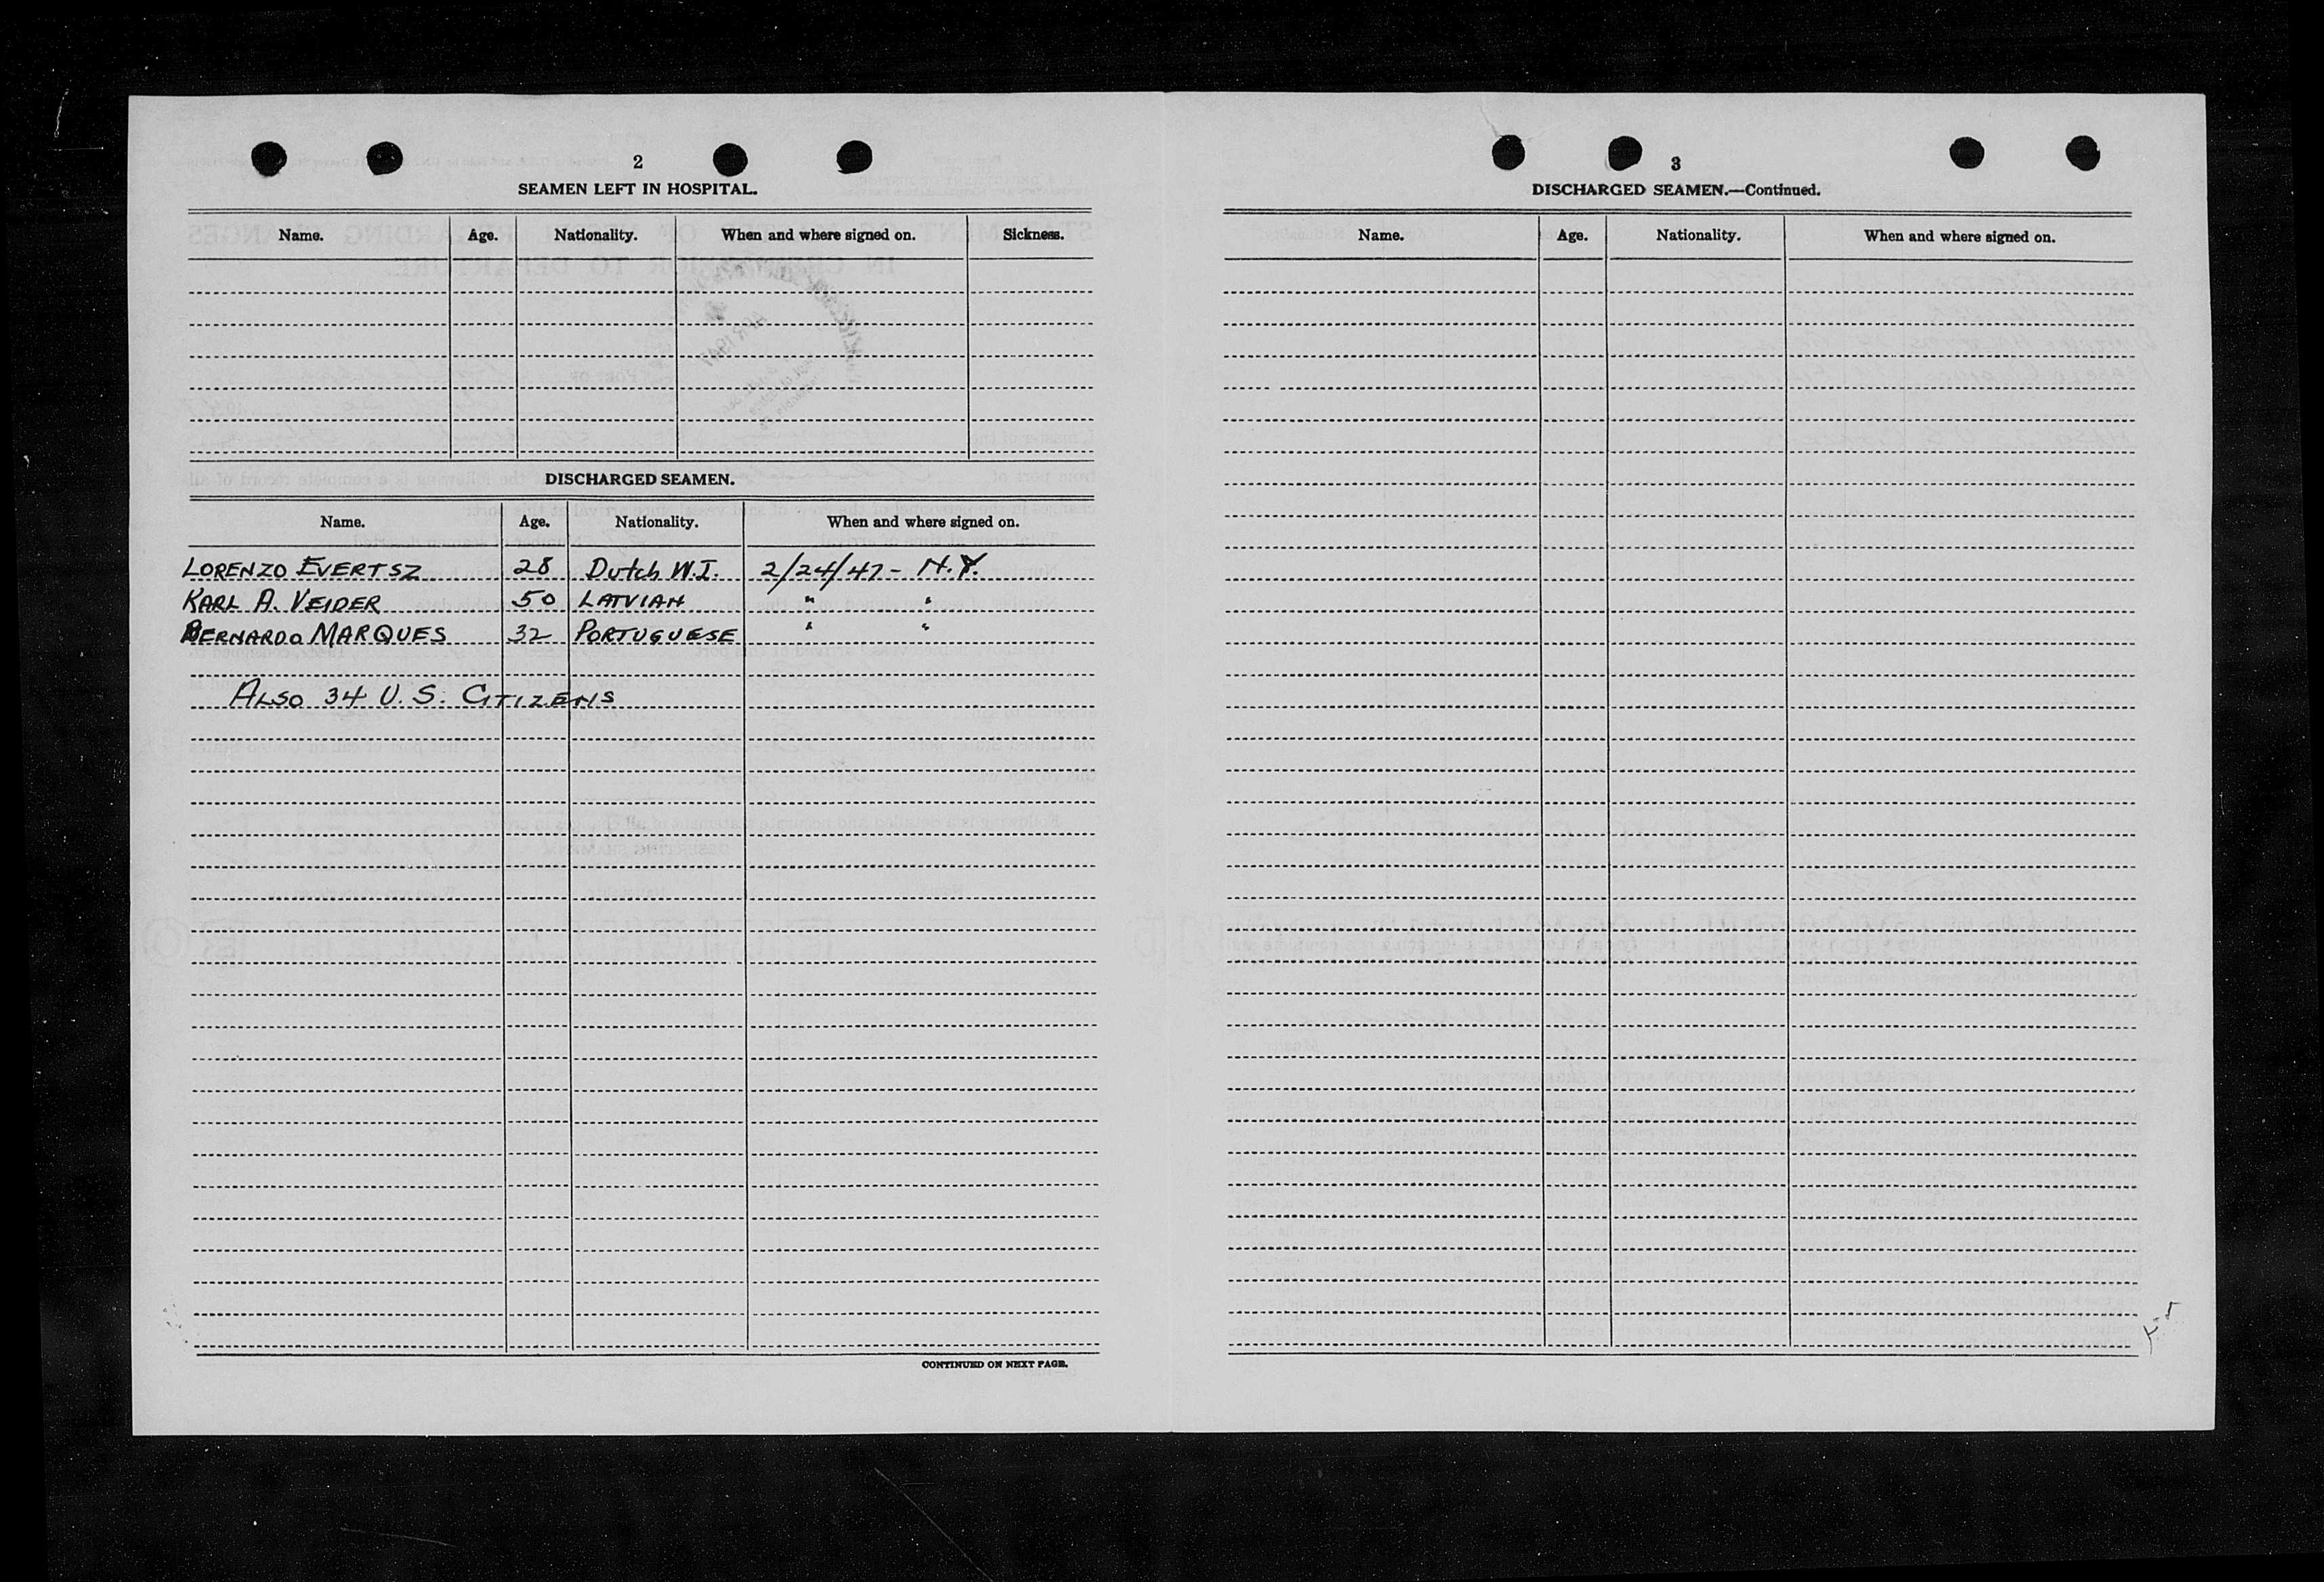 2
SEAMEN LEFT IN HOSPITAL.
Name. Age. Nationality. When and where signed on. Sickness.
DISCHARGED SEAMEN.
Name. Age. Nationality. When and where signed on.
LORENZO EVERTSZ 28 Dutch W.I. 2/24/47 - N.Y.
KARL A. VEIDER 50 LATVIAN " "
BERNARDO MARQUES 32 PORTUGUESE " "
ALSO 34 U.S. CITIZENS
CONTINUED ON NEXT PAGE.
3
DISCHARGED SEAMEN.—Continued.
Name. Age. Nationality. When and where signed on.